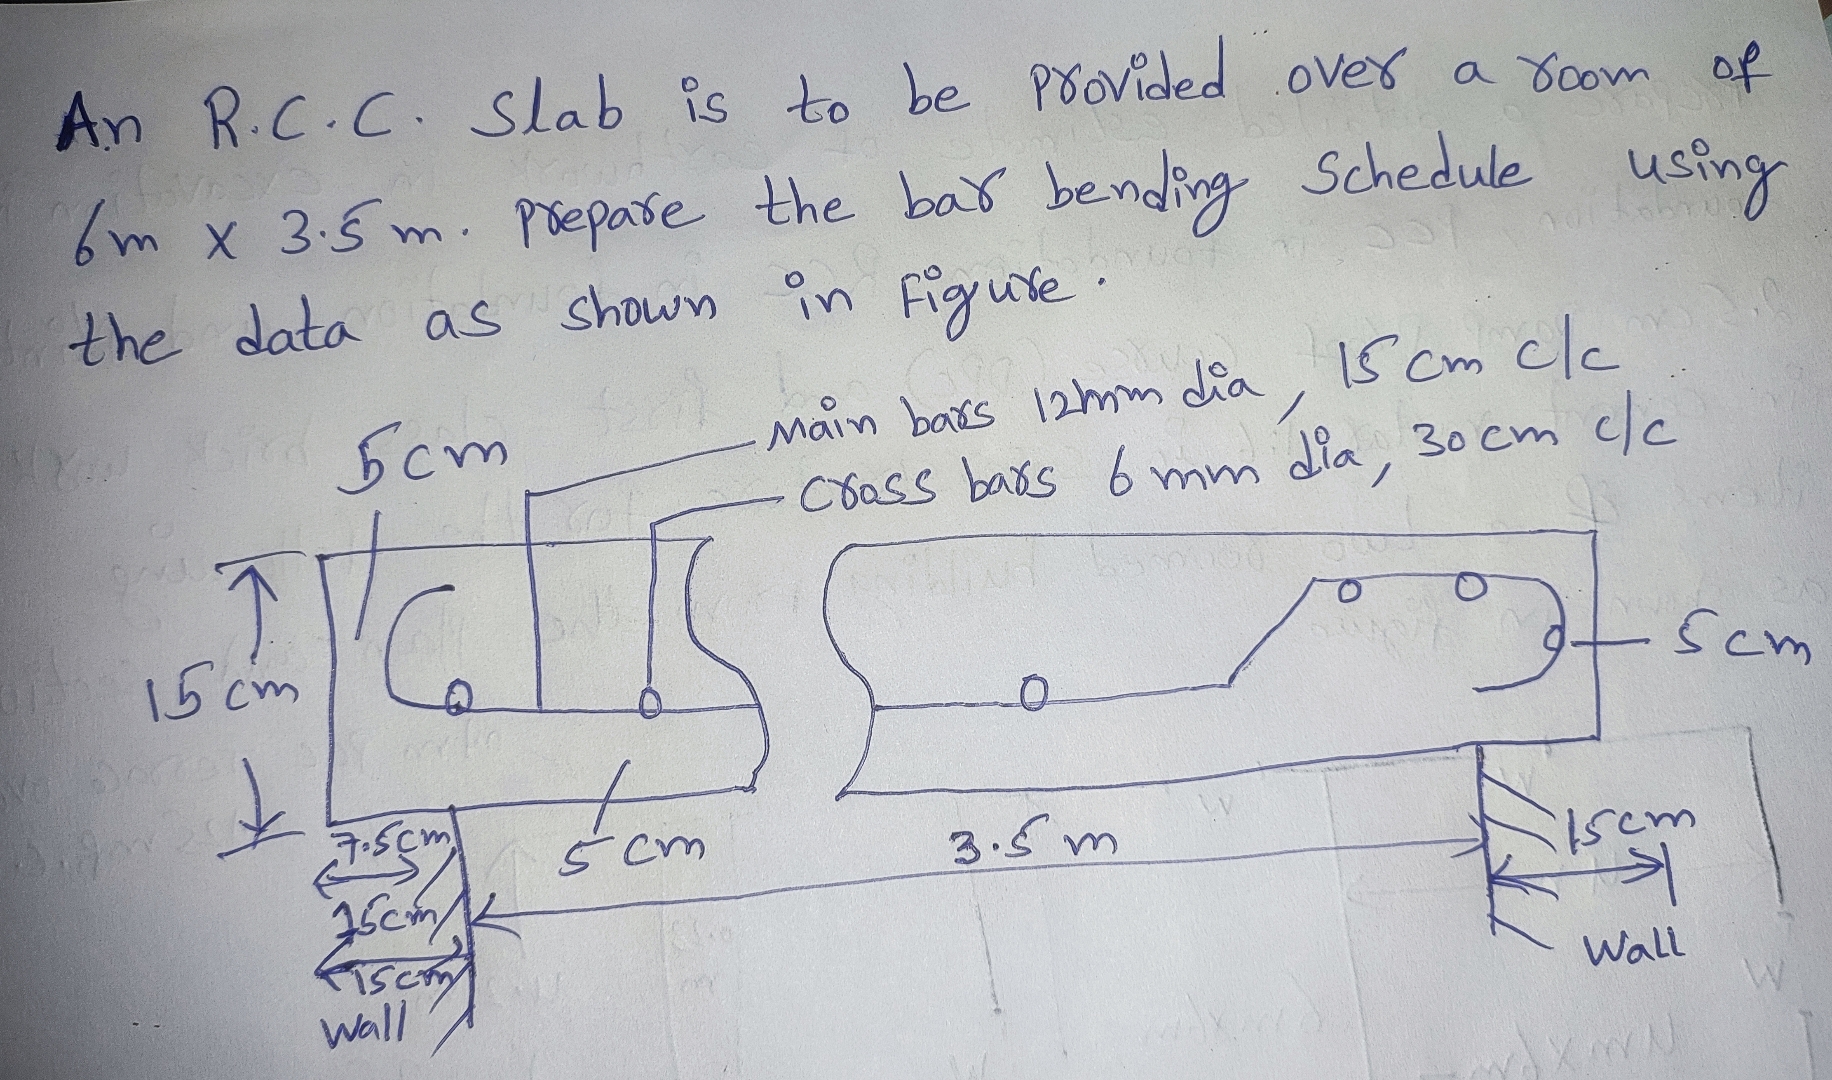 An R.C.C. Slab is to be provided over a room of
6m x 3.5 m. prepare the bar bending Schedule using
the data as shown in Figure.
Main bars 12mm dia, 15 cm c/c
Cross bars 6 mm dia, 30 cm c/c
5cm
15 cm
5cm
7.5cm
5 cm
3.5 m
15cm
15cm
15cm
Wall
Wall